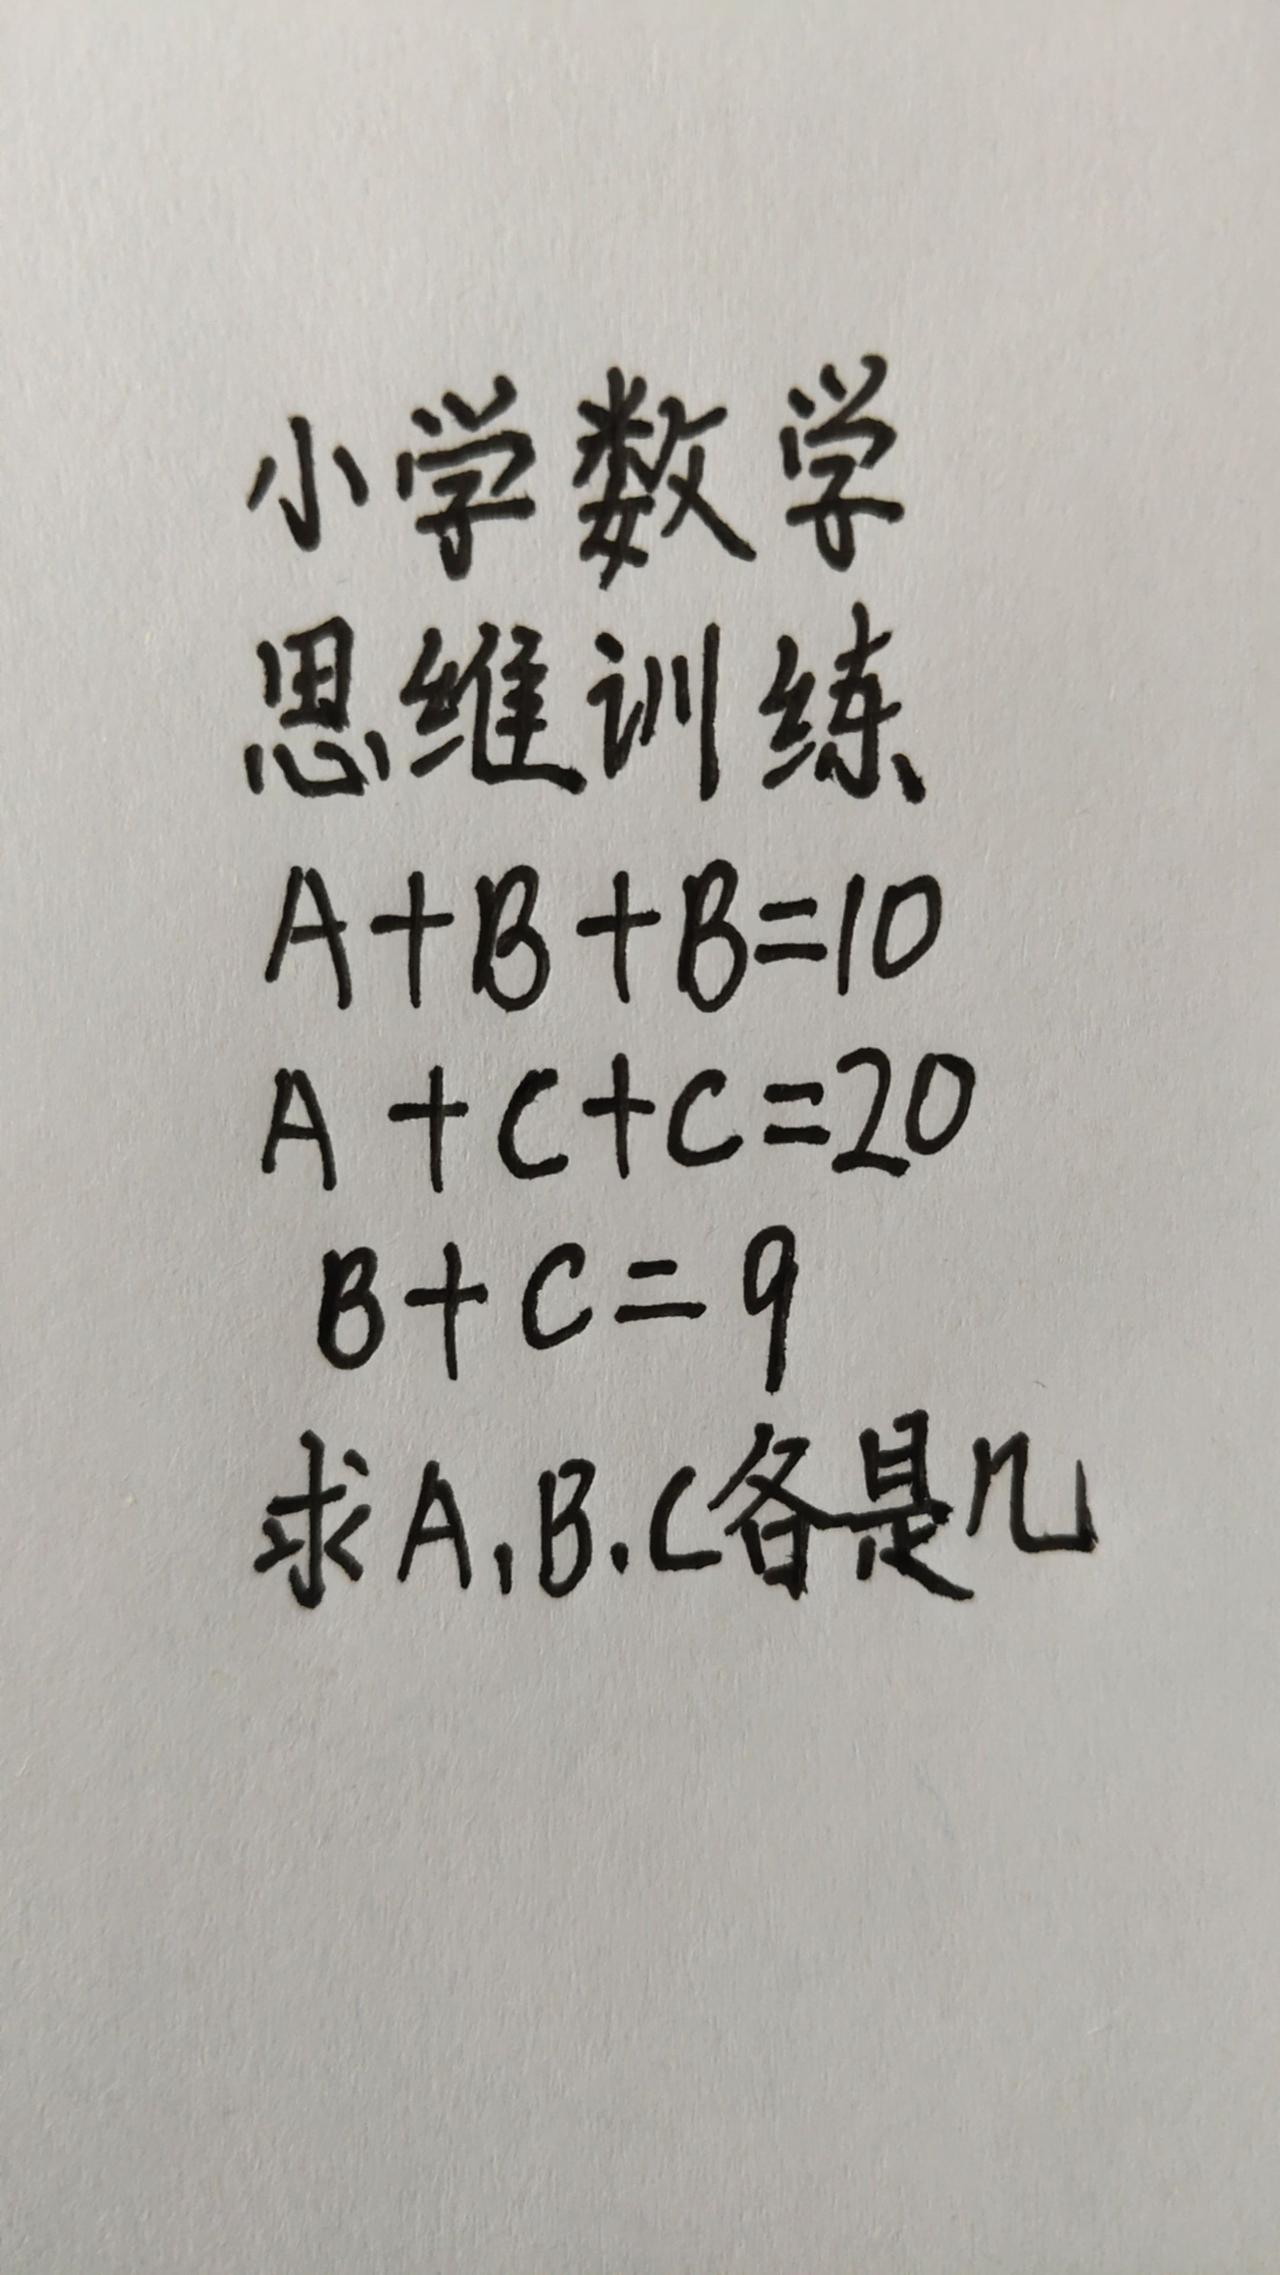 小学数学
思维训练
A+B+B=10
A+C+C=20
B+C=9
求A,B.C各是几